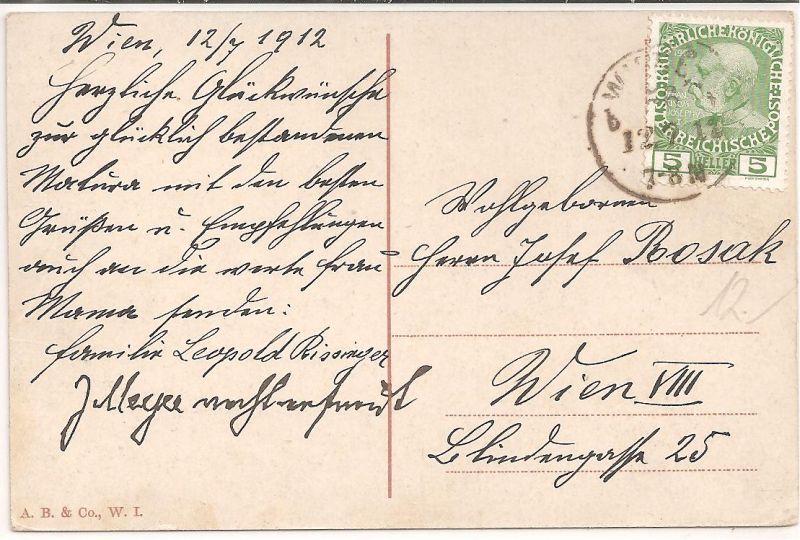 Wien, 12/7 1912
Herzliche Glückwünsche
zur glücklich bestandenen
Matura mit den besten
Grüßen u. Empfehlungen
auch an die werte Frau
Mama senden:
Familie Leopold Rissinger
J Meyer
A. B. & Co., W. I.
KAISERLICHE KÖNIGLICHE
ÖSTERREICHISCHE POST
5 HELLER 5
WIEN
12
7-8 N
Wohlgeboren
Herrn Josef Rosak
12.
Wien VIII
Blindengasse 25